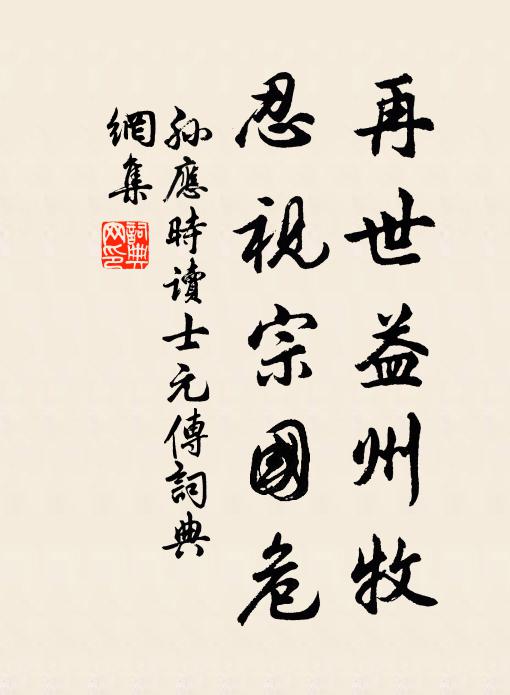 再世益州牧
忍視宗國危
孫應時讀士元傳詞典
網集
詞典
网印